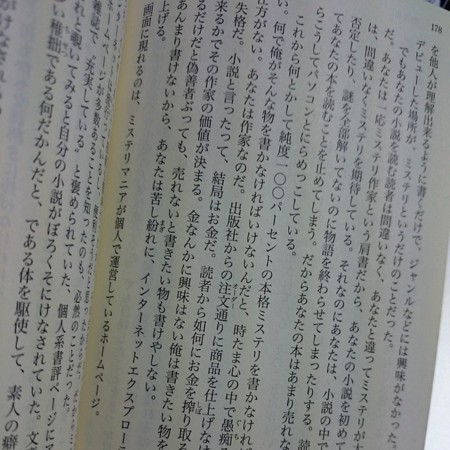 178
を他人が理解出来るように書くだけで、ジャンルなどには興味がなかった。
デビューした場所が、ミステリというだけのことだった。
でもあなたの小説を読む読者は間違いなく、あなたと違ってミステリが大
だ。あなたは一応ミステリ作家という肩書だから、あなたの小説を初めて
は、間違いなくミステリを期待している。それなのにあなたは、小説の中で
否定したり、謎を全部解いてないのに物語を終わらせてしまったりする。読
てあなたの本を読むことを止めてしまう。だからあなたの本はあまり売れな
らこうしてパソコンとにらめっこしている。
これから何とかして純度一〇〇パーセントの本格ミステリを書かなければ
い。何で俺がそんな物を書かなければいけないんだと、時たま心の中で愚痴る
仕方がない。あなたは作家なのだ。出版社からの注文通りに商品を仕上げなけ
失格だ。小説と言ったって、結局はお金だ。読者から如何にお金を搾り取る
来るかでその作家の価値が決まる。金なんかに興味はない俺は書きたい物を
るだけだと偽善者ぶっても、売れないと書きたい物も書けやしない。
あんまり書けないから、あなたは苦し紛れに、インターネットエクスプローラ
上げる。
画面に現れるのは、ミステリマニアが個人で運営しているホームページ。
ホームページが多数あることを知ったのも、必然のことだった。
雑誌で、充実している。と褒められていた、個人系書評ページにア
れと覗いてみると自分の小説がぼろくそにけなされていた。文章
い稚拙である何だかんだと、である体を駆使して、素人の癖